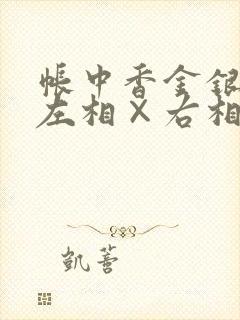 帳中香金銀
左相×右相
凱薔